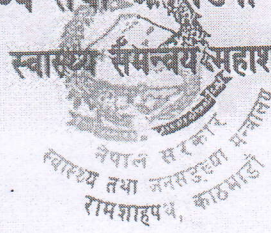 स्वास्थ्य समन्वय महाश
नेपाल सरकार
स्वास्थ्य तथा जनसङ्ख्या मन्त्रालय
रामशाहपथ, काठमाडौं